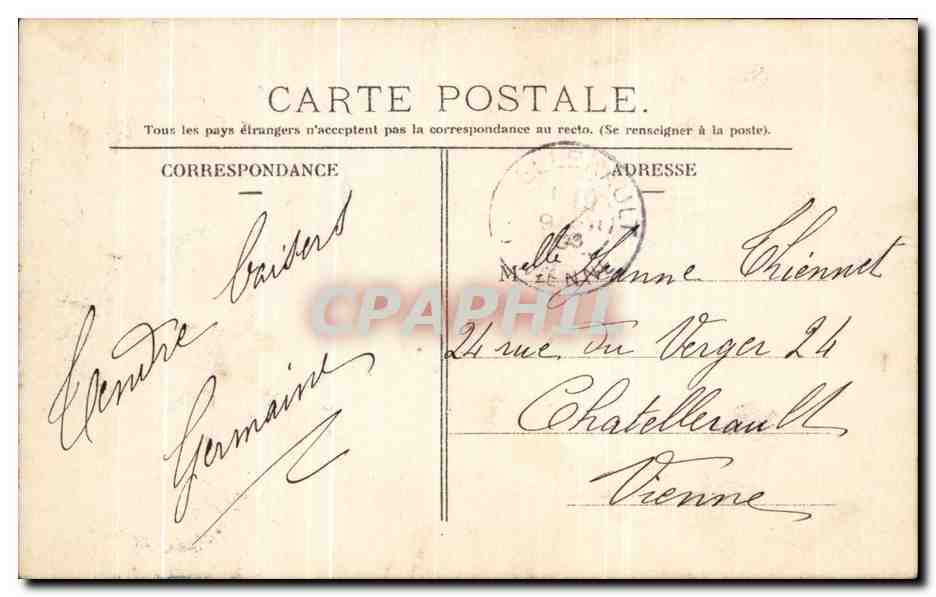 CARTE POSTALE.
Tous les pays étrangers n'acceptent pas la correspondance au recto. (Se renseigner à la poste).
CORRESPONDANCE
ADRESSE
Tendre baisers
Germaine
Melle Jeanne Thiennet
24 rue du Verger 24
Chatellerault
Vienne
CPAPHIL